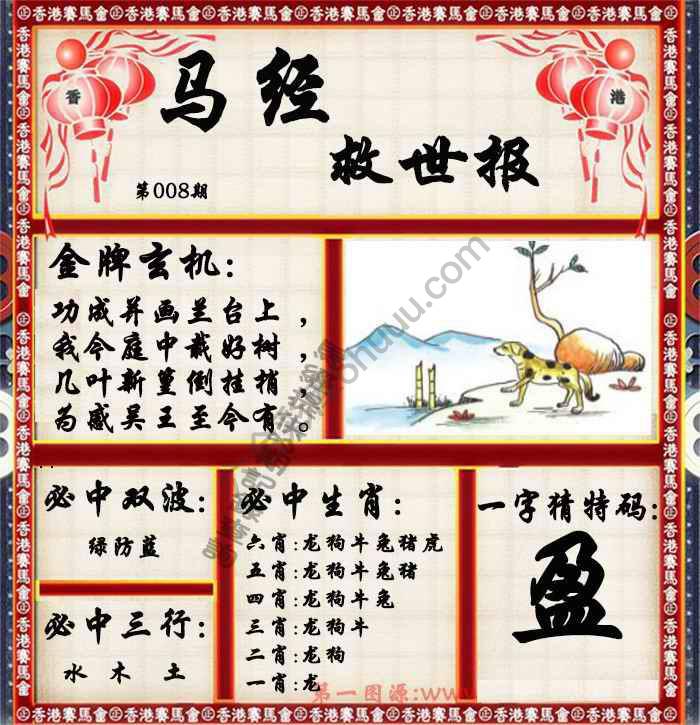 香港賽馬會
香 港
马经
救世报
第008期
金牌玄机:
功成并画兰台上，
我今庭中栽好树，
几叶新篁倒挂梢，
为感吴王至今有。
必中双波:
绿防蓝
必中三行:
水 木 土
必中生肖:
六肖:龙狗牛兔猪虎
五肖:龙狗牛兔猪
四肖:龙狗牛兔
三肖:龙狗牛
二肖:龙狗
一肖:龙
一字猜特码:
盈
第一图源:www